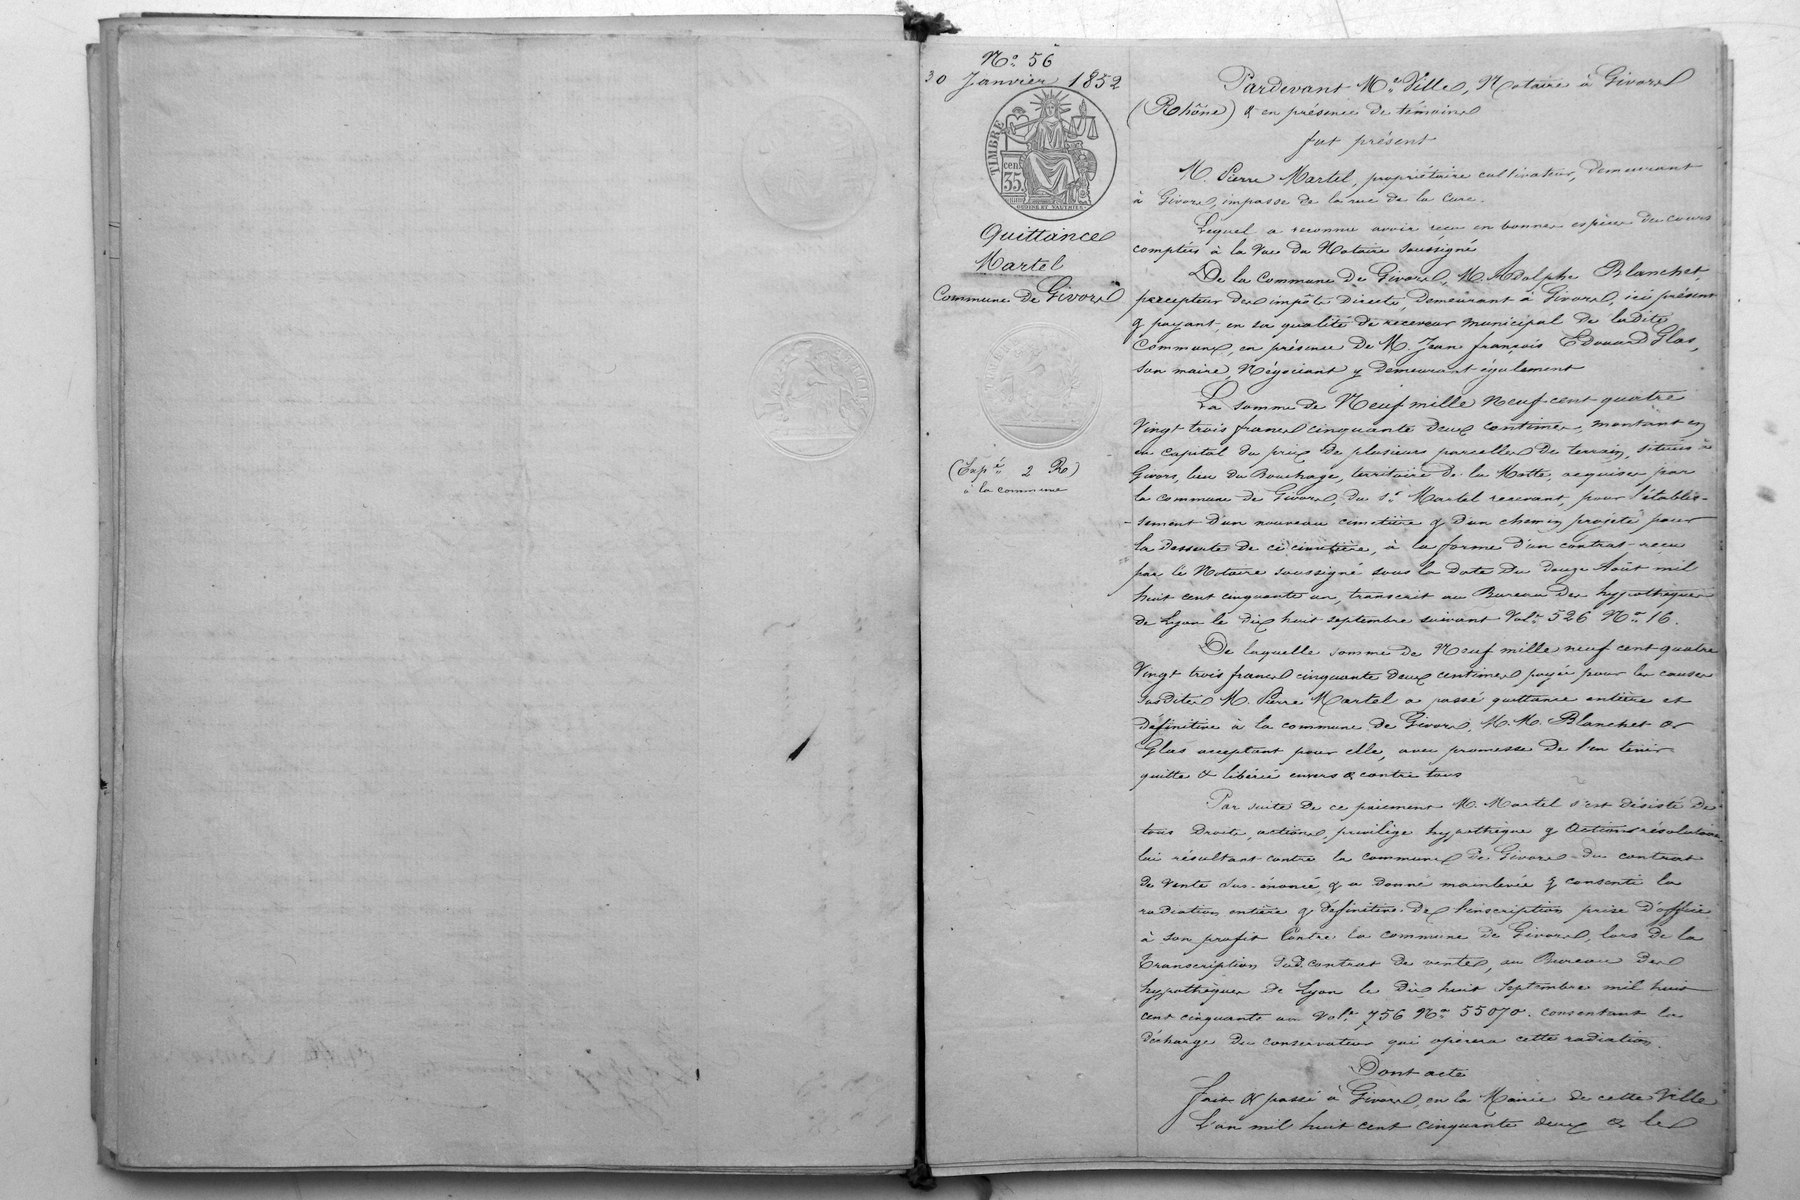 N° 56
30 Janvier 1852
TIMBRE
cent
35
Quittance
Martel
Commune de Givors
(Expé 2 R)
à la commune
Pardevant Me Ville, Notaire à Givors
(Rhône) & en présence de témoins
fut présent
M. Pierre Martel, propriétaire cultivateur, demeurant
à Givors, impasse de la rue de la Cure.
Lequel a reconnu avoir reçu en bonnes espèces du cours
comptées à la vue du Notaire soussigné
De la Commune de Givors, M. Adolphe Blanchet,
percepteur des impôts directs, demeurant à Givors, ici présent
& payant, en sa qualité de receveur municipal de ladite
Commune, en présence de M. Jean françois Edouard Glas,
son maire, Négociant y demeurant également
La somme de Neuf mille neuf cent quatre
Vingt trois francs cinquante deux centimes, montant en
en capital du prix de plusieurs parcelles de terrain, situées à
Givors, lieu du Bouchage, territoire de la Motte, acquises par
la commune de Givors, du sr. Martel recevant, pour l'établis-
-sement d'un nouveau cimetière & d'un chemin projeté pour
la desserte de ce cimetière, à la forme d'un contrat reçu
par le Notaire soussigné sous la date du douze Août mil
huit cent cinquante un, transcrit au Bureau des hypothèques
de Lyon le dix huit septembre suivant Vol. 526 N° 16.
De laquelle somme de Neuf mille neuf cent quatre
Vingt trois francs cinquante deux centimes payée pour les causes
susdites M. Pierre Martel a passé quittance entière et
définitive à la commune de Givors, M. M. Blanchet &
Glas acceptant pour elle, avec promesse de l'en tenir
quitte & libérée envers & contre tous
Par suite de ce paiement M. Martel s'est désisté de
tous droits, actions, privilège hypothèque & action résolutoire
lui résultant contre la commune de Givors du contrat
de vente sus-énoncé, & a donné mainlevée & consenti la
radiation entière & définitive de l'inscription prise d'office
à son profit contre la commune de Givors, lors de la
Transcription sud. contrat de vente, au Bureau des
hypothèques de Lyon le dix huit septembre mil huit
cent cinquante un Vol. 756 N° 55070. consentant la
décharge du conservateur qui opérera cette radiation.
Dont acte
Fait & passé à Givors, en la Mairie de cette Ville
L'an mil huit cent cinquante deux & le